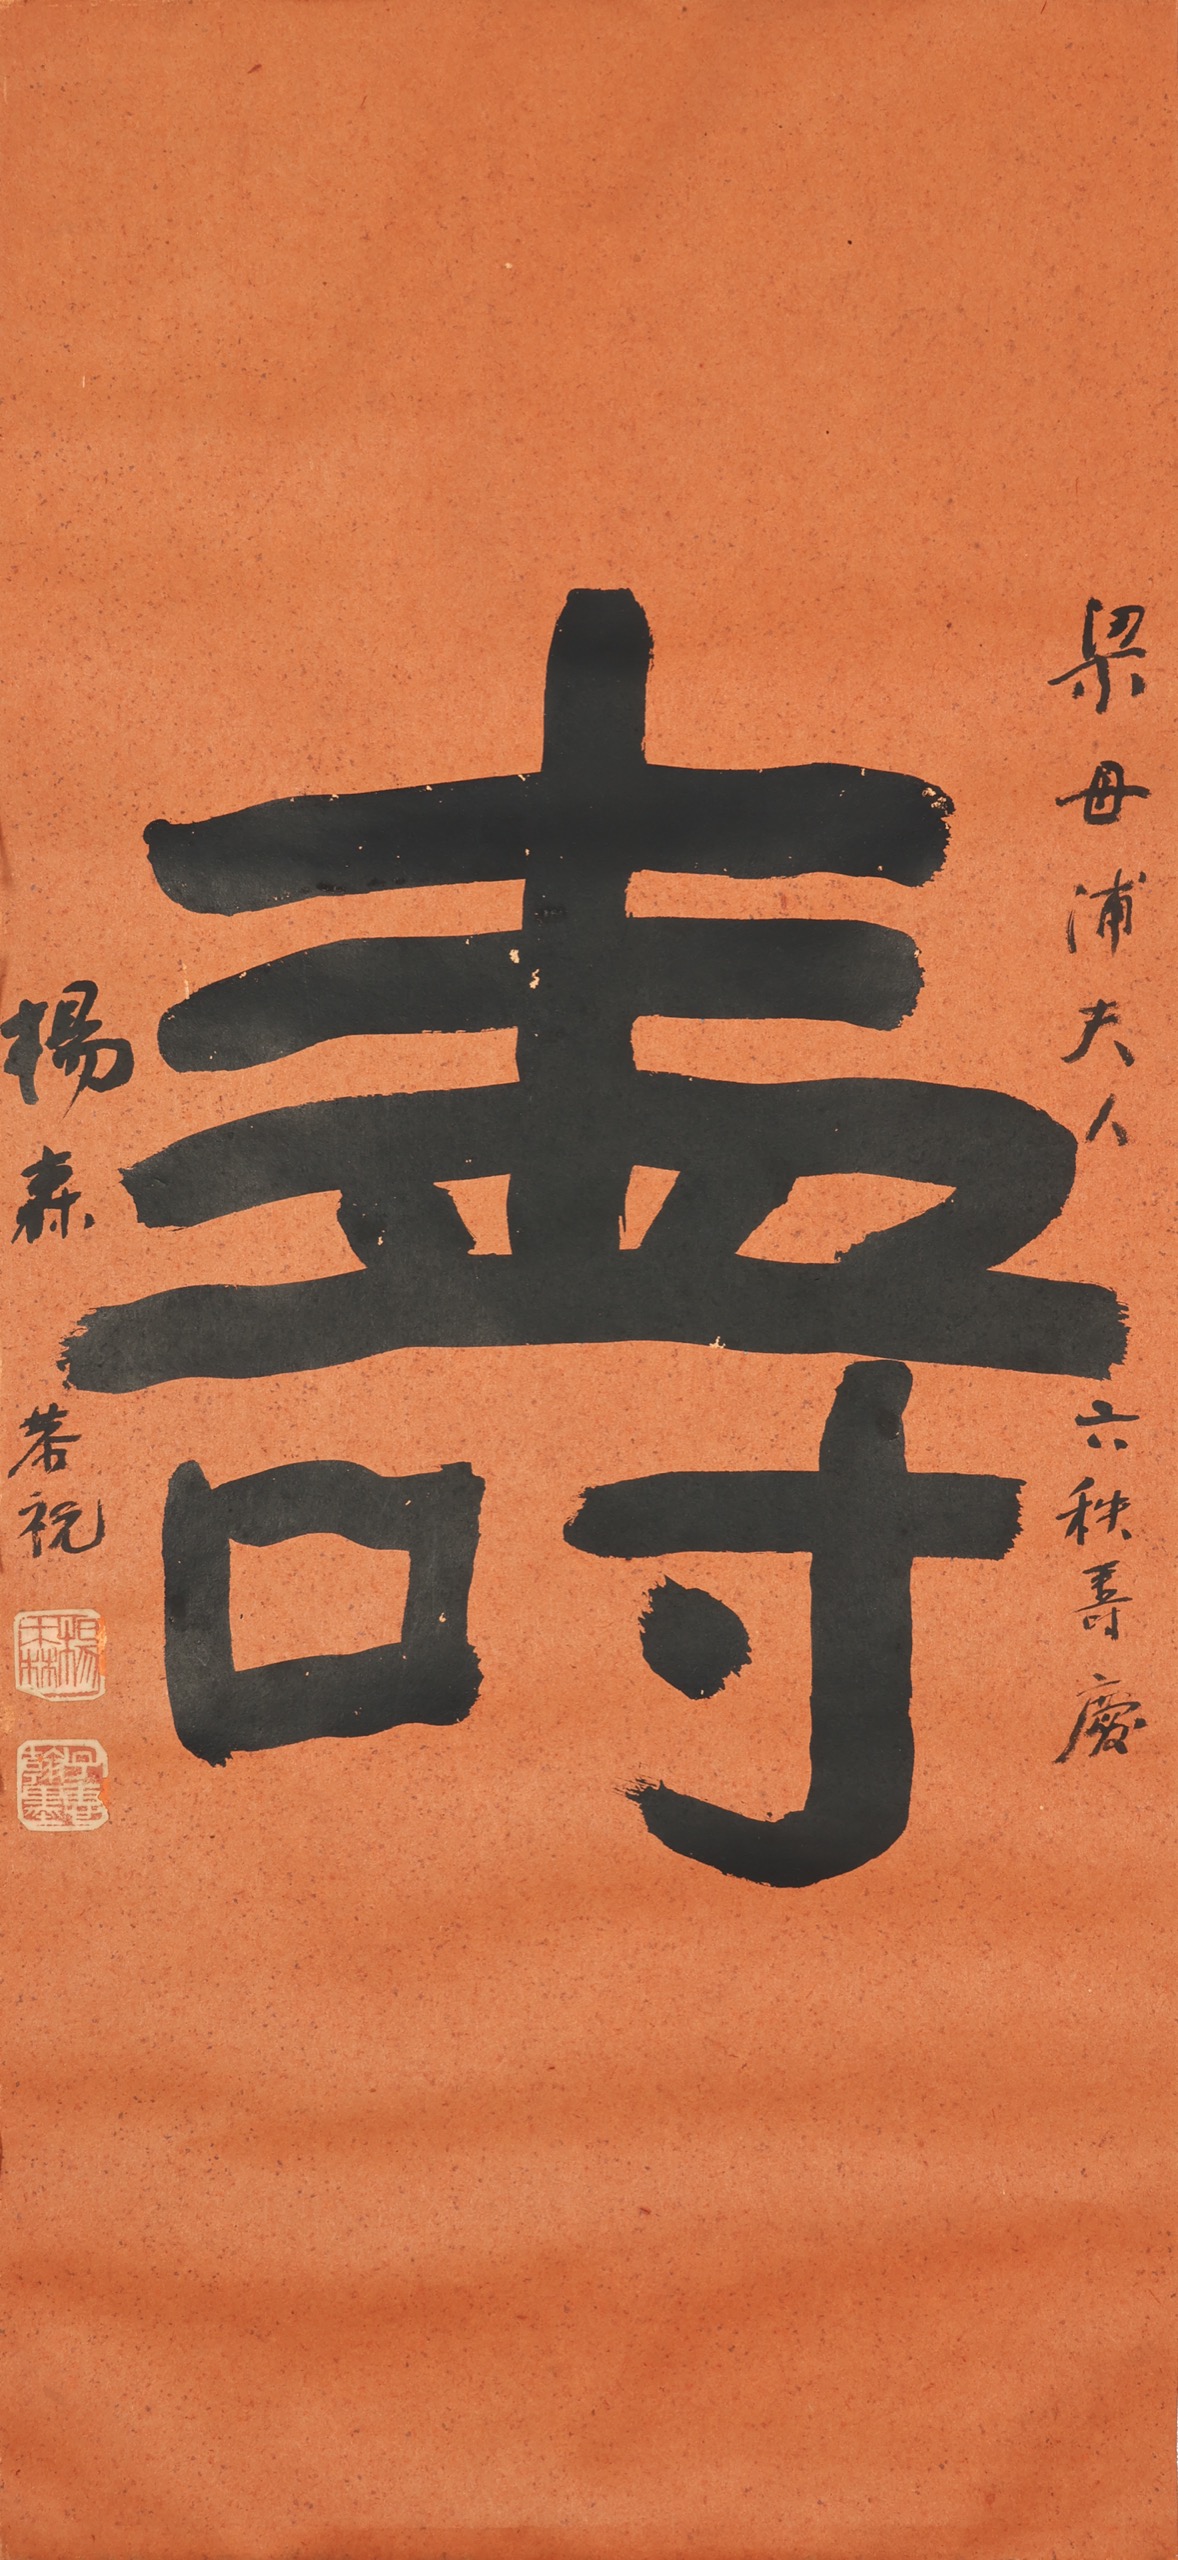 梁母浦夫人六秩壽慶
壽
楊森恭祝
楊森
子惠翰墨